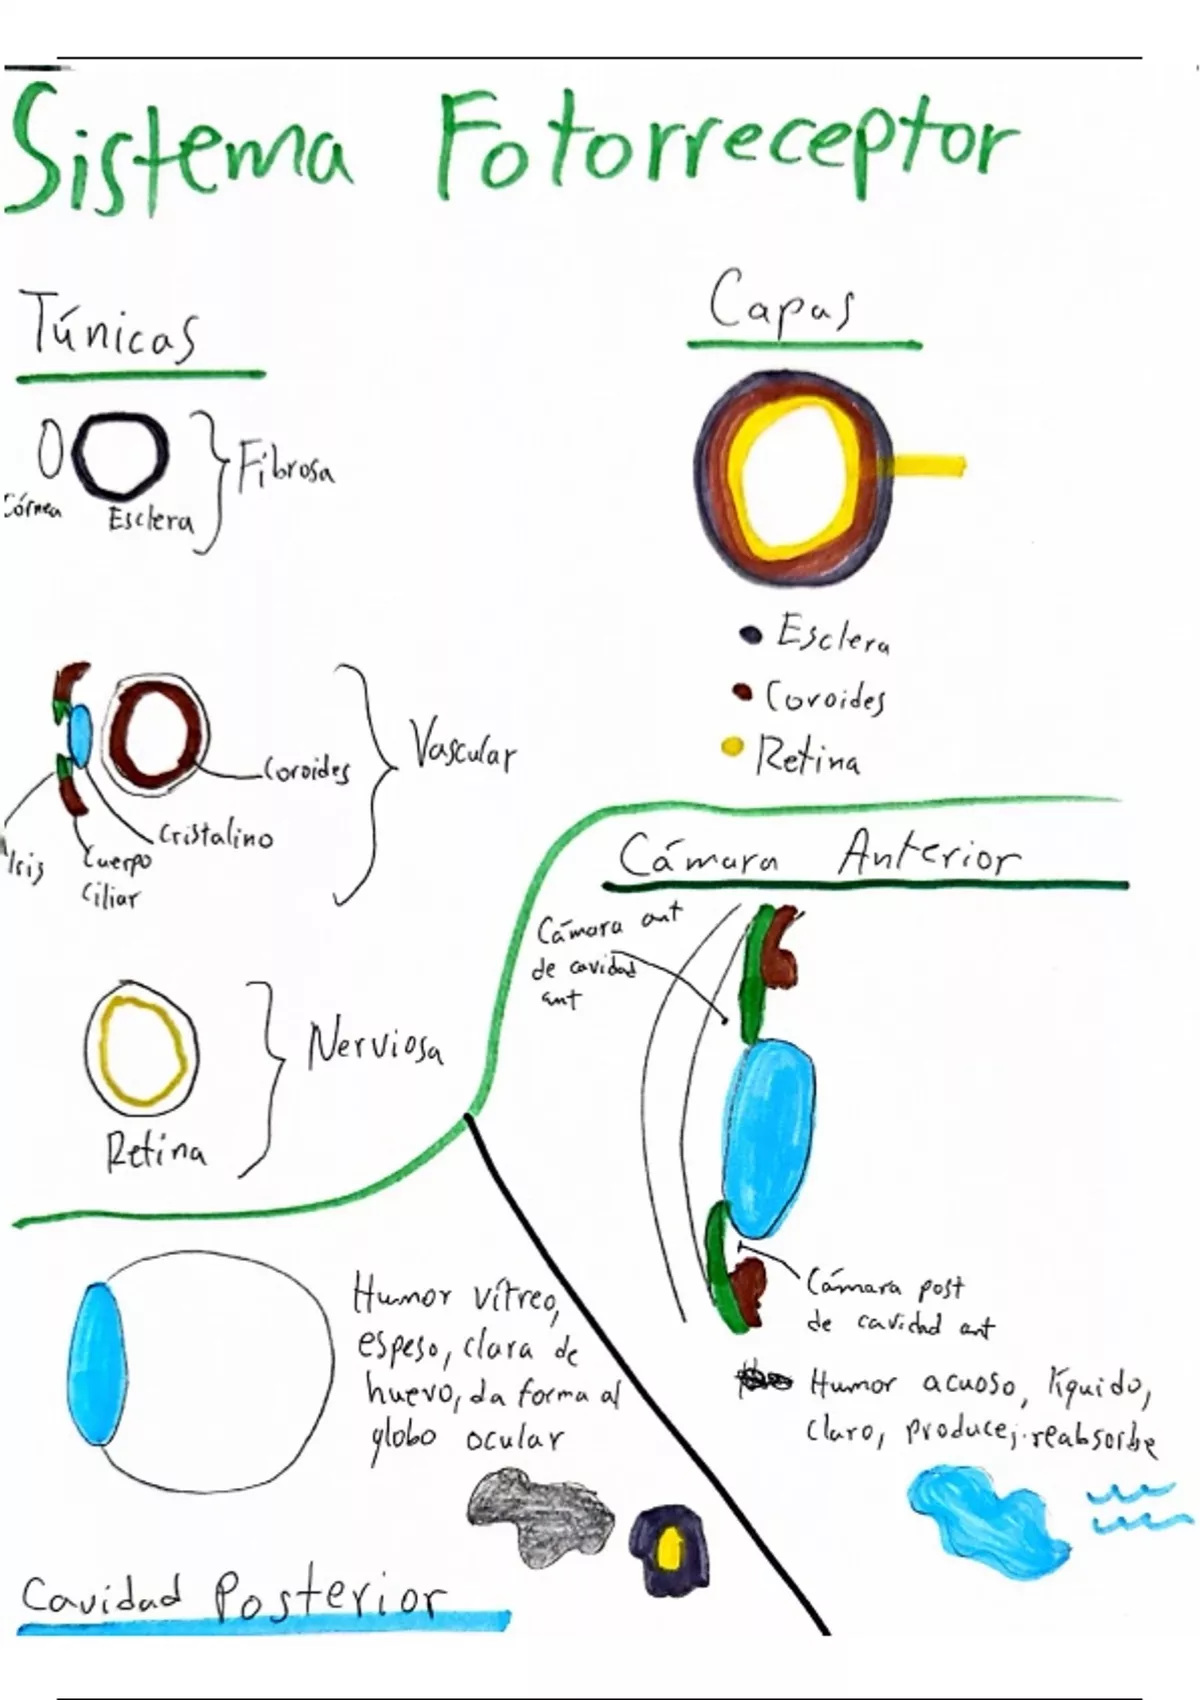 Sistema Fotorreceptor
Túnicas
Córnea
Esclera
Fibrosa
Coroides
Cristalino
Iris
Cuerpo
Ciliar
Vascular
Retina
Nerviosa
Capas
Esclera
Coroides
Retina
Cámara Anterior
Cámara ant
de cavidad
ant
Cámara post
de cavidad ant
Humor acuoso, líquido,
claro, produce, reabsorbe
Humor vítreo,
espeso, clara de
huevo, da forma al
globo ocular
Cavidad Posterior